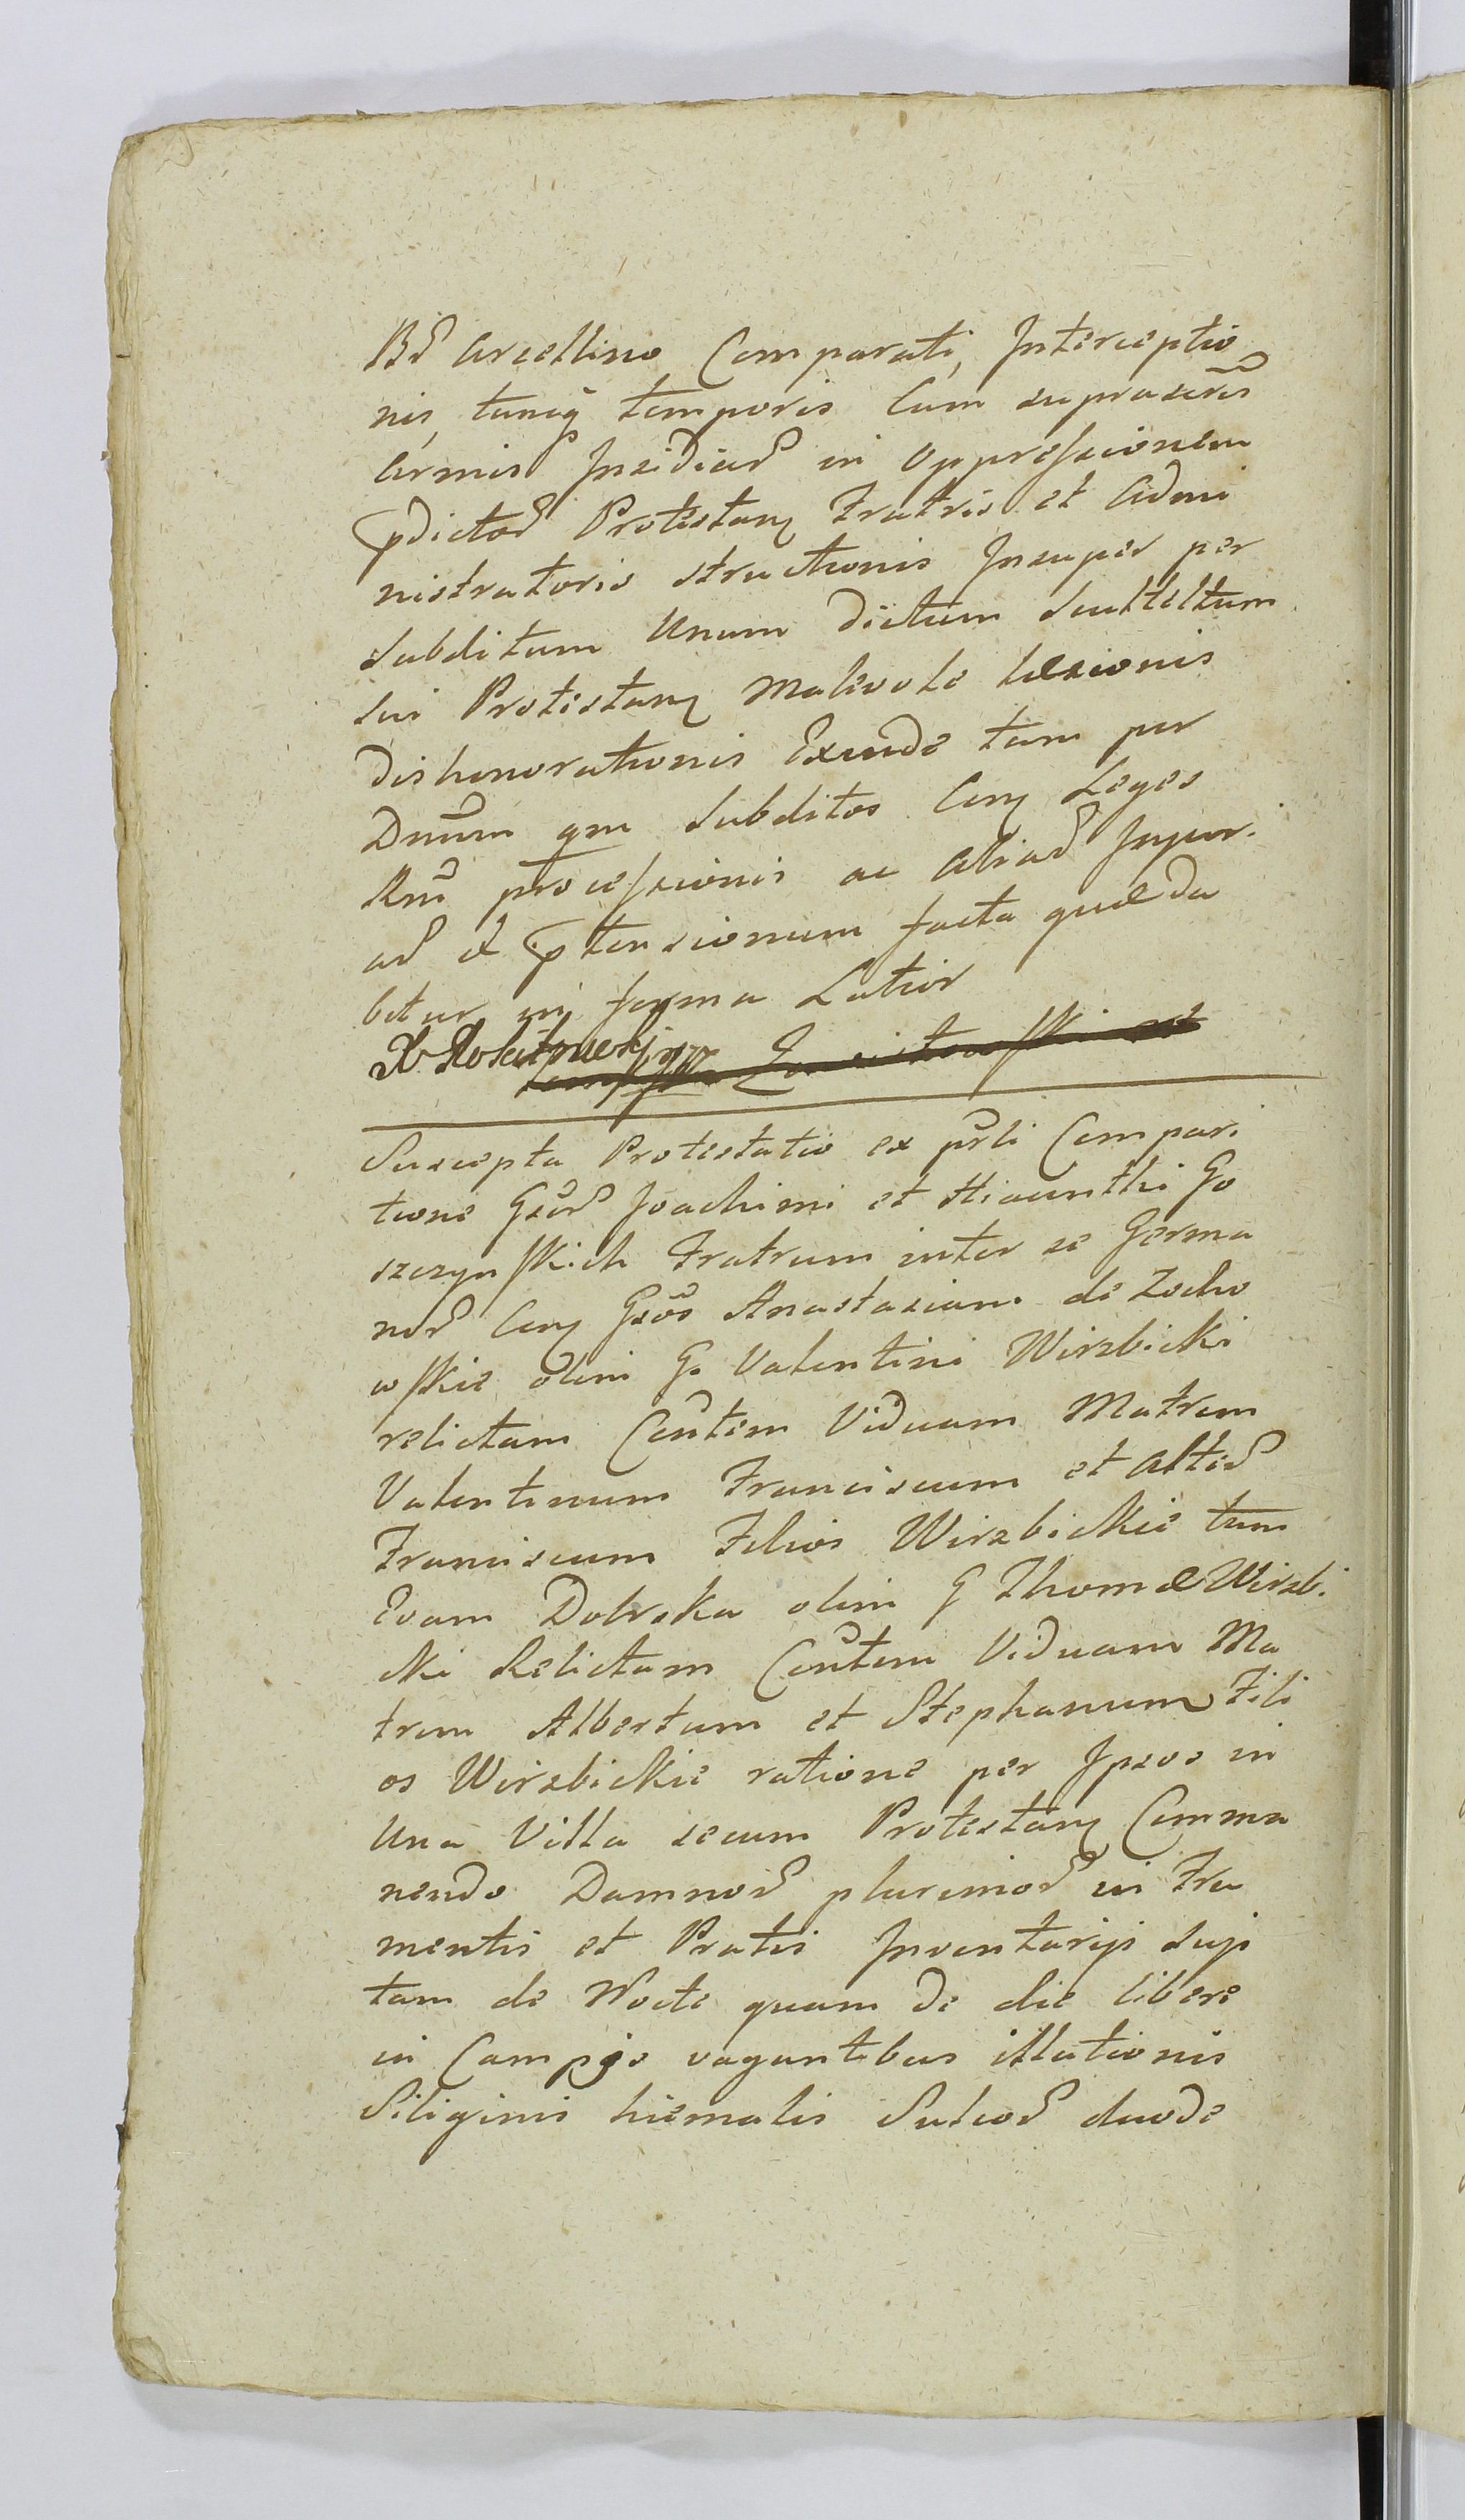 Bd Arcellino Comparati, Interceptio
nis, tuncq temporis Cum suprascris
Armis Insidiar in Oppressionem
pdictor Protestan Fratris et Admi
nistratoris structionis Insuper per
Subditum Unum dictum Scultettum
sui Protestan Malevole læsionis
dishonorationis Exinde tam per
Dnum qm Subditos Con Leges
Rni processionis ac Aliar Injur.
ar et ptensionum facta quæ da
bitur in forma Latior
X Rokitnicki mp
Suscepta Protestatio ex prli Compari
tione Gser Joachimi et Hiacinthi Go
szczynskich Fratrum inter se Germa
nor Con Gsos Anastasiam de Zocho
wskie olim G. Valentini Wirzbicki
relictam Contem Viduam Matrem
Valentinum Franciscum et Alter
Franciscum Filios Wirzbickie tum
Evam Dolrska olim G Thomæ Wirzbi
cki Relictam Contem Viduam Ma
trem Albertum et Stephanum Fili
os Wirzbickie ratione per Ipsos in
Una Villa secum Protestan Comma
nendo Damnor plurimor in Fru
mentis et Pratis Inventarijs suis
tam de Nocte quam de die libere
in Campis vagantibus illationis
Siliginis hiemalis Sulcor duode